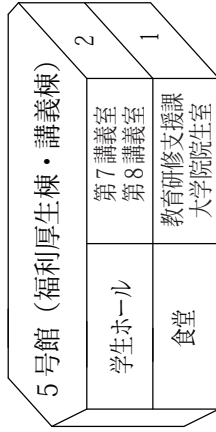 5号館（福利厚生棟・講義棟）
2
学生ホール
第7講義室
第8講義室
1
食堂
教育研修支援課
大学院院生室